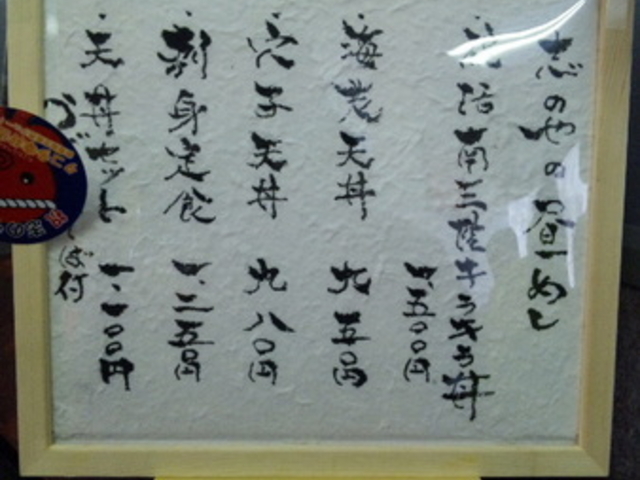 志のやの昼めし
・復活南三陸キラキラ丼
一、五〇〇円
・海老天丼 九五〇円
・穴子天丼 九八〇円
・刺身定食 一、三五〇円
・天丼セット 一、一〇〇円
ば付